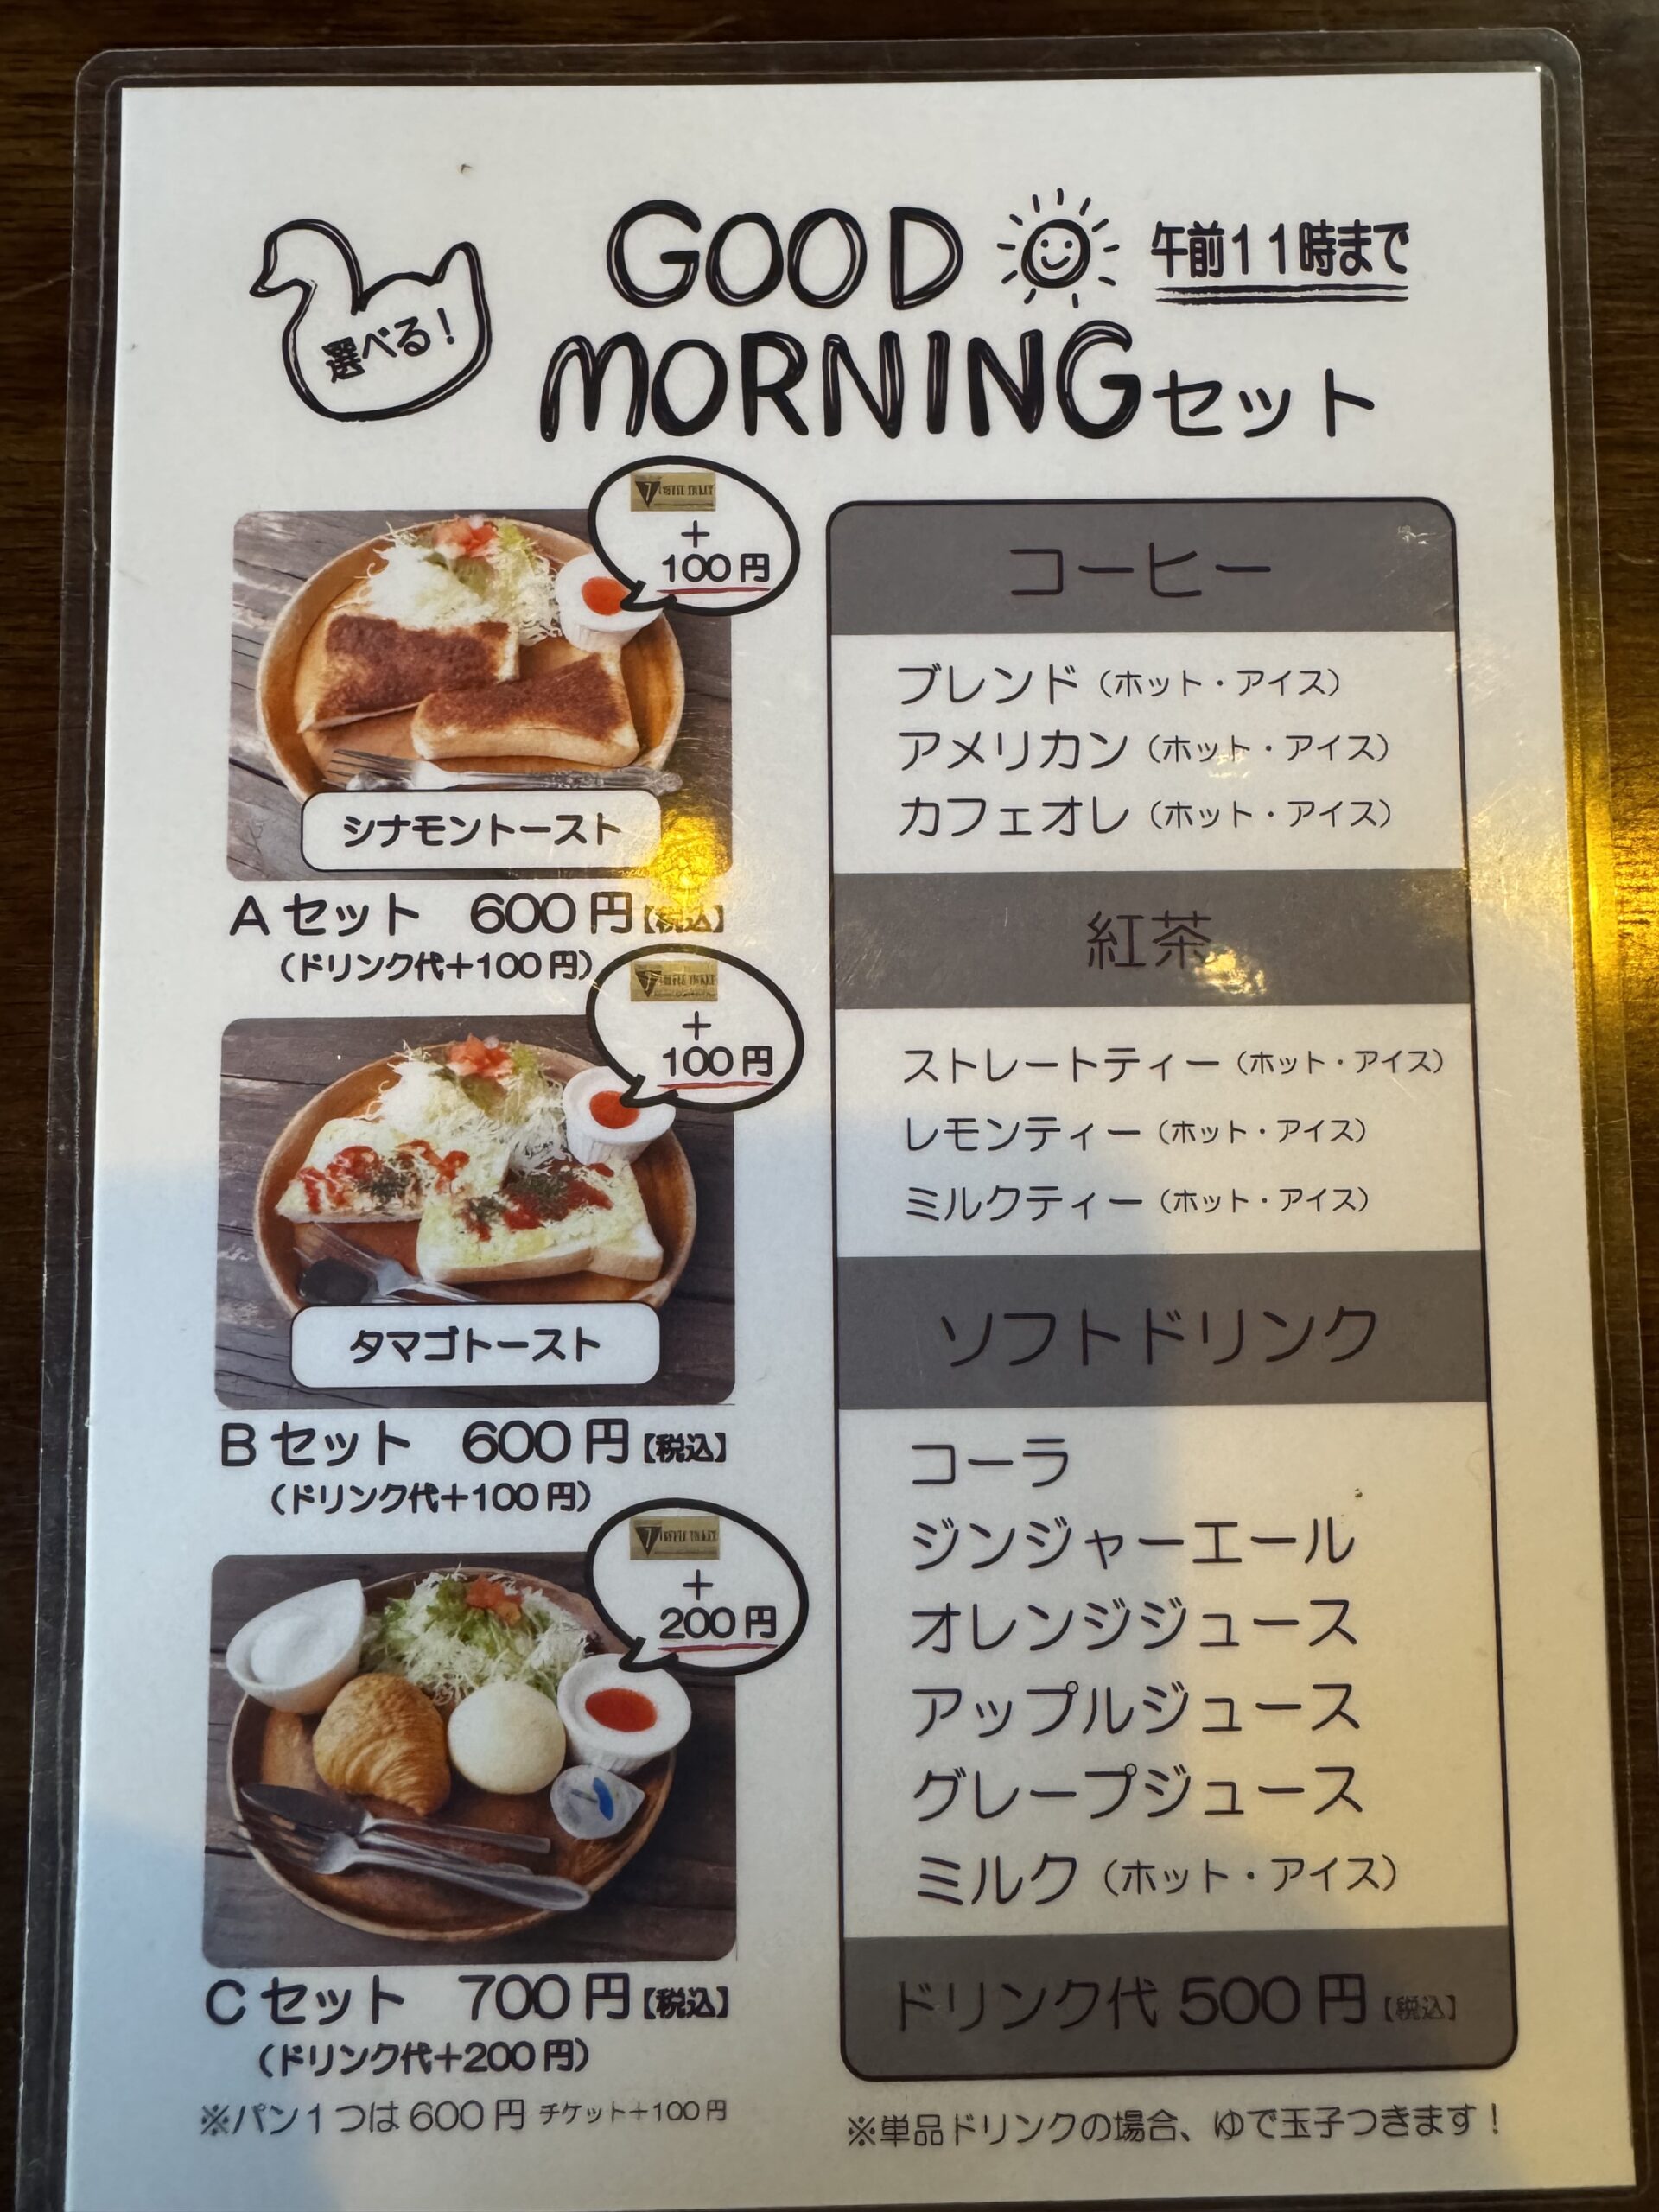 選べる！
GOOD
午前11時まで
MORNINGセット
COFFEE TICKET
+
100円
シナモントースト
Aセット 600円【税込】
（ドリンク代+100円）
COFFEE TICKET
+
100円
タマゴトースト
Bセット 600円【税込】
（ドリンク代+100円）
COFFEE TICKET
+
200円
Cセット 700円【税込】
（ドリンク代+200円）
※パン1つは600円 チケット+100円
コーヒー
ブレンド（ホット・アイス）
アメリカン（ホット・アイス）
カフェオレ（ホット・アイス）
紅茶
ストレートティー（ホット・アイス）
レモンティー（ホット・アイス）
ミルクティー（ホット・アイス）
ソフトドリンク
コーラ
ジンジャーエール
オレンジジュース
アップルジュース
グレープジュース
ミルク（ホット・アイス）
ドリンク代 500円【税込】
※単品ドリンクの場合、ゆで玉子つきます！